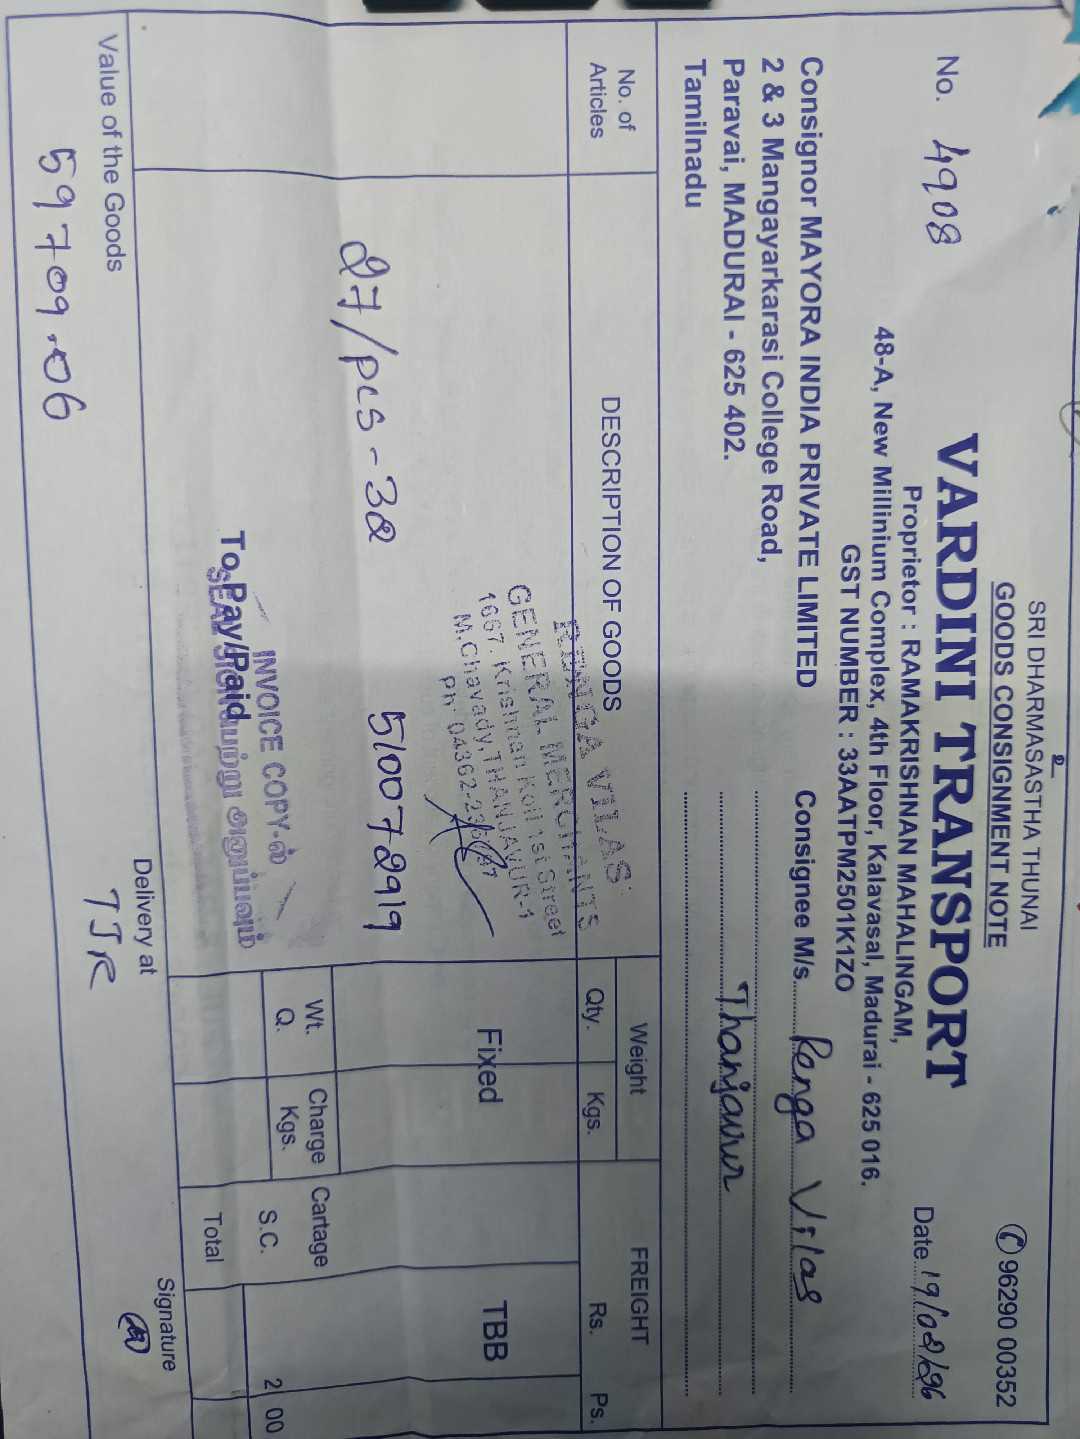 SRI DHARMASASTHA THUNAI
GOODS CONSIGNMENT NOTE
✆ 96290 00352
No. 4908
VARDINI TRANSPORT
Proprietor : RAMAKRISHNAN MAHALINGAM,
48-A, New Millinium Complex, 4th Floor, Kalavasal, Madurai - 625 016.
GST NUMBER : 33AATPM2501K1ZO
Date 19/02/
Consignor MAYORA INDIA PRIVATE LIMITED
2 & 3 Mangayarkarasi College Road,
Paravai, MADURAI - 625 402.
Tamilnadu
Consignee M/s. Renga Vilas
Thanjavur
No. of Articles
DESCRIPTION OF GOODS
Weight
Qty. Kgs.
FREIGHT
Rs. Ps.
RENGA VILAS
GENERAL MERCHANTS
1667. Krishnan Koil 1st Street
M.Chavady, THANJAVUR-1
Ph 04362-
Fixed
TBB
27/pcs - 32 510072919
Wt. Q.
Charge Kgs.
Cartage
INVOICE COPY-ல்
SEAL SIGN பெற்று அனுப்பவும்
To Pay/Paid
S.C. 2 00
Total
Value of the Goods
597709.06
Delivery at
TJR
Signature